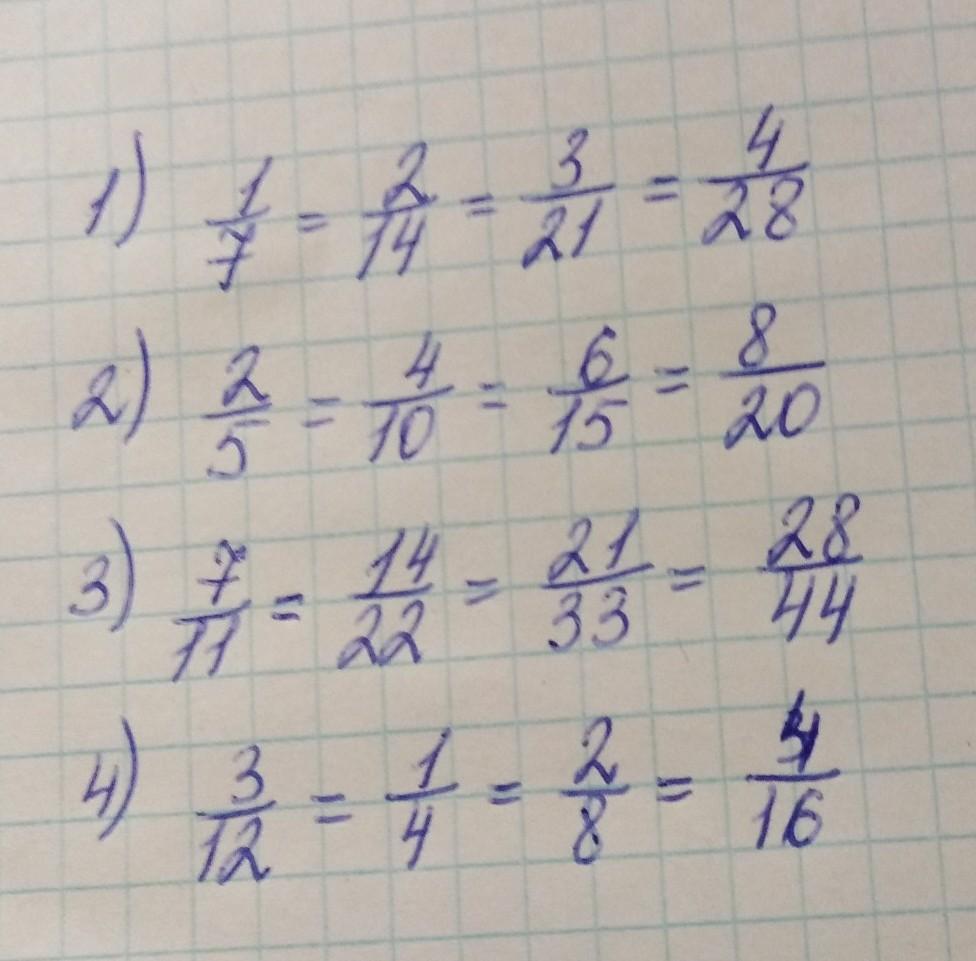 1) 1/7 = 2/14 = 3/21 = 4/28
2) 2/5 = 4/10 = 6/15 = 8/20
3) 7/11 = 14/22 = 21/33 = 28/44
4) 3/12 = 1/4 = 2/8 = 4/16